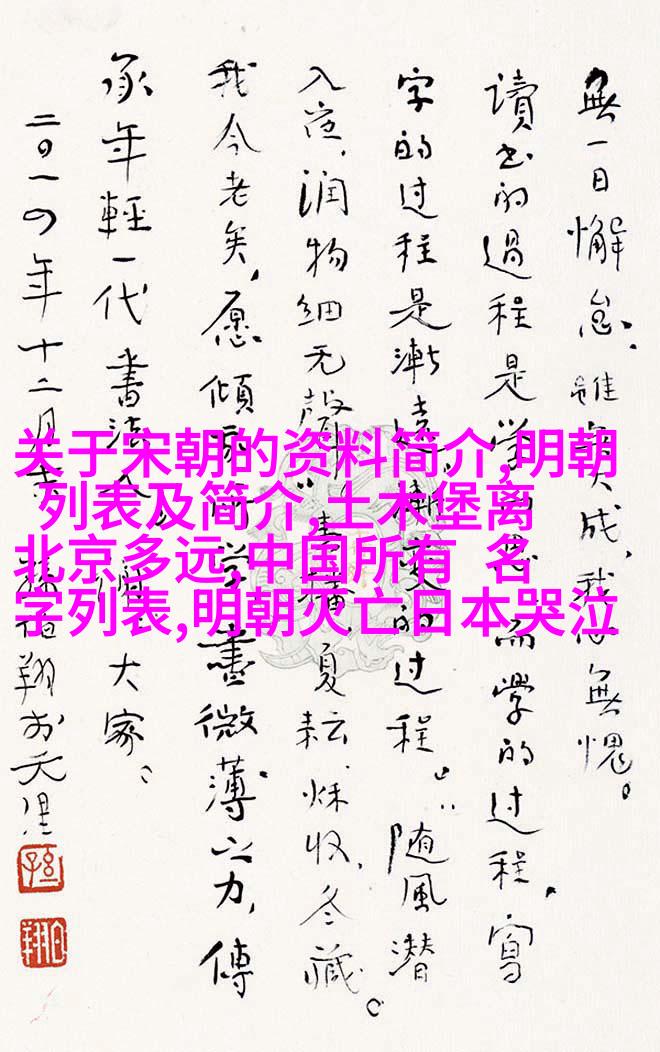 無一日懈怠,雖無大成,我心無愧。
讀书的過程是学而學的过程,寫
字的过程是漸变的过程。随風潜
入夜,润物细无聲,春播、夏耘、秋收、冬藏。
我今老矣,愿傾所学,盡微薄之力,傳
承年輕一代書法大家。
二〇一四年十二月孫伯翔於天津
关于宋朝的资料简介,明朝
列表及简介,土木堡离
北京多远,中国所有 名
字列表,明朝灭亡日本哭泣